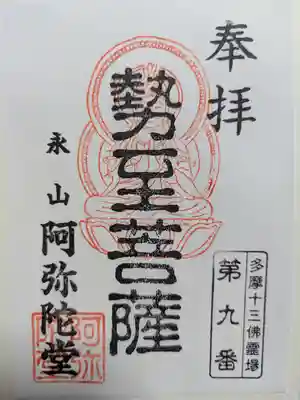 奉拝
勢至菩薩
多摩十三佛霊場
第九番
永山
阿弥陀堂